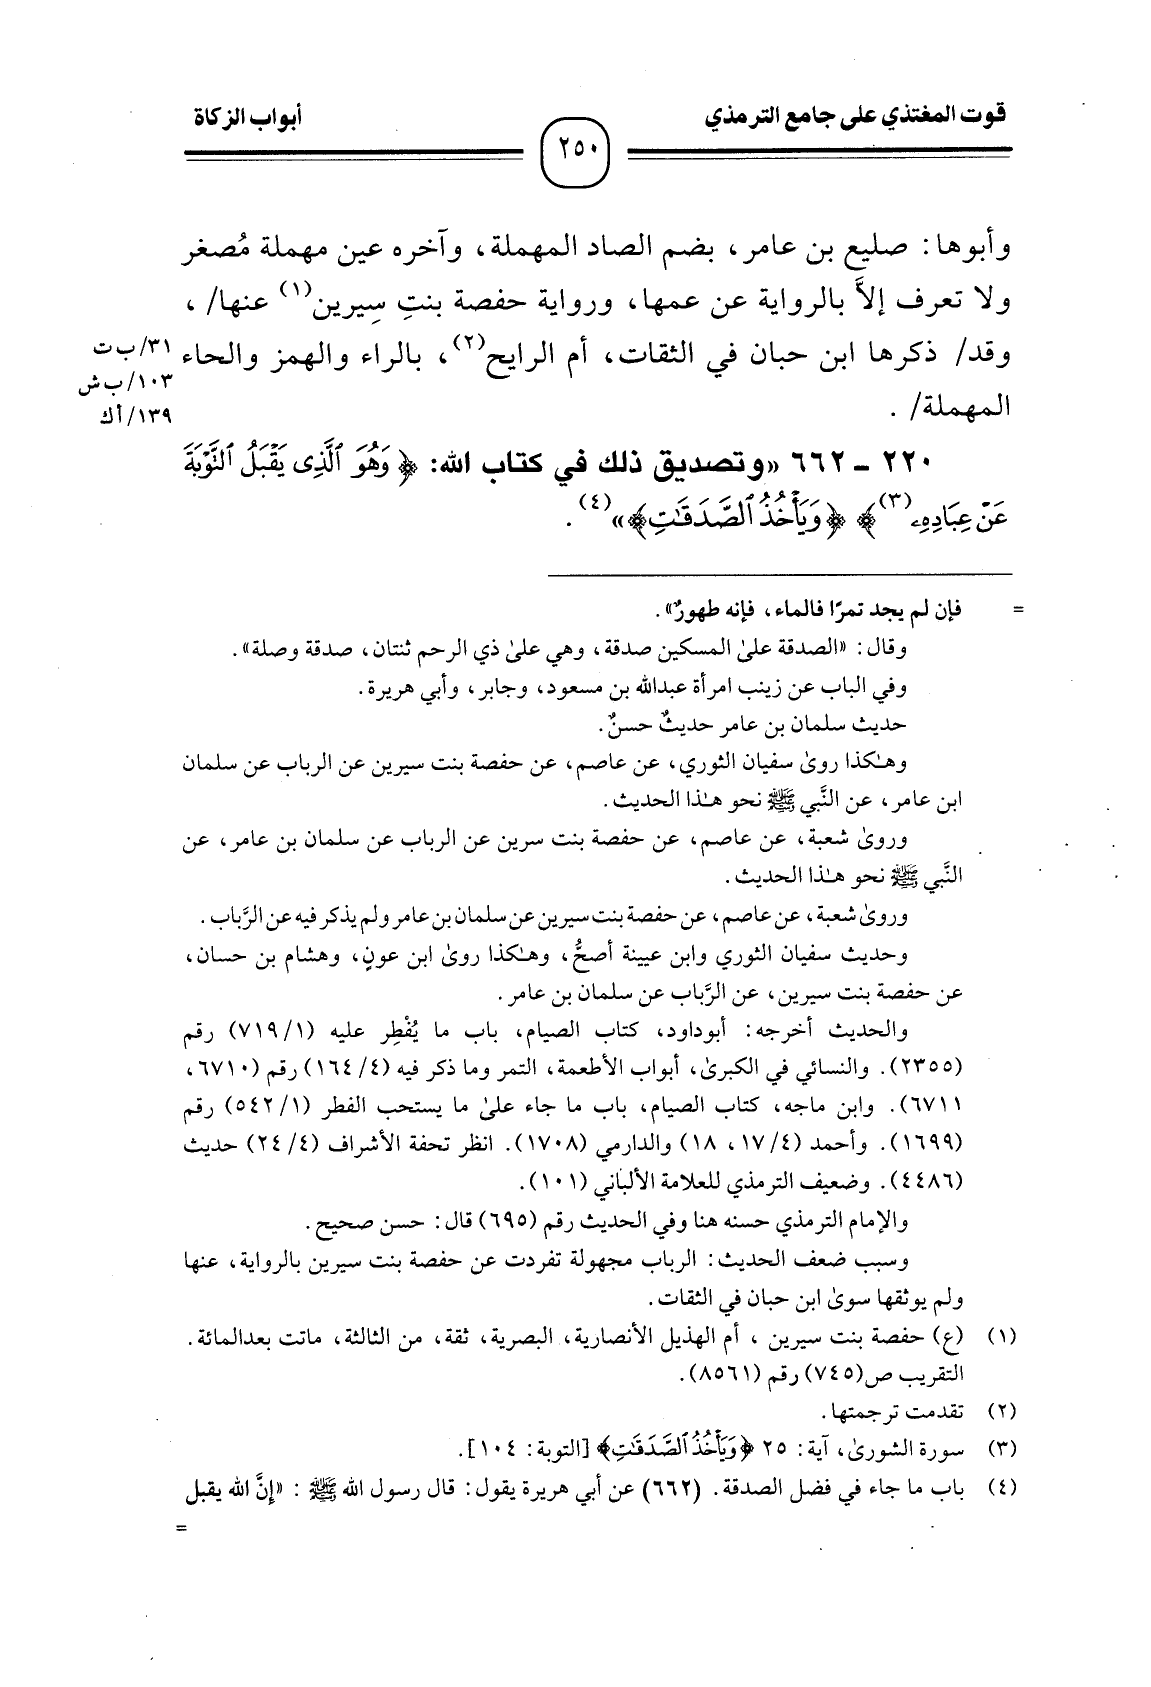 قوت المغتذي على جامع الترمذي
٢٥٠
أبواب الزكاة
وأبوها: صليع بن عامر، بضم الصاد المهملة، وآخره عين مهملة مُصغر
ولا تعرف إلاَّ بالرواية عن عمها، ورواية حفصة بنتِ سِيرين(١) عنها/ ،
وقد/ ذكرها ابن حبان في الثقات، أم الرايح(٢)، بالراء والهمز والحاء
المهملة/ .
٣١/ب ت
١٠٣/ب ش
١٣٩/أ ك
٢٢٠ - ٦٦٢ «وتصديق ذلك في كتاب الله: ﴿ وَهُوَ ٱلَّذِى يَقْبَلُ ٱلتَّوْبَةَ
عَنْ عِبَادِهِۦ(٣)﴾ ﴿ وَيَأْخُذُ ٱلصَّدَقَـٰتِ﴾»(٤).
= فإن لم يجد تمرًا فالماء، فإنه طهورٌ».
وقال: «الصدقة علىٰ المسكين صدقة، وهي علىٰ ذي الرحم ثنتان، صدقة وصلة».
وفي الباب عن زينب امرأة عبدالله بن مسعود، وجابر، وأبي هريرة.
حديث سلمان بن عامر حديثٌ حسنٌ.
وهـٰكذا روىٰ سفيان الثوري، عن عاصم، عن حفصة بنت سيرين عن الرباب عن سلمان
ابن عامر، عن النَّبي ﷺ نحو هـٰذا الحديث.
وروىٰ شعبة، عن عاصم، عن حفصة بنت سرين عن الرباب عن سلمان بن عامر، عن
النَّبي ﷺ نحو هـٰذا الحديث.
وروىٰ شعبة، عن عاصم، عن حفصة بنت سيرين عن سلمان بن عامر ولم يذكر فيه عن الرَّباب.
وحديث سفيان الثوري وابن عيينة أصحُّ، وهـٰكذا روىٰ ابن عونٍ، وهشام بن حسان،
عن حفصة بنت سيرين، عن الرَّباب عن سلمان بن عامر.
والحديث أخرجه: أبوداود، كتاب الصيام، باب ما يُفْطِر عليه (٧١٩/١) رقم
(٢٣٥٥). والنسائي في الكبرىٰ، أبواب الأطعمة، التمر وما ذكر فيه (١٦٤/٤) رقم (٦٧١٠،
٦٧١١). وابن ماجه، كتاب الصيام، باب ما جاء علىٰ ما يستحب الفطر (٥٤٢/١) رقم
(١٦٩٩). وأحمد (١٧/٤، ١٨) والدارمي (١٧٠٨). انظر تحفة الأشراف (٢٤/٤) حديث
(٤٤٨٦). وضعيف الترمذي للعلامة الألباني (١٠١).
والإمام الترمذي حسنه هنا وفي الحديث رقم (٦٩٥) قال: حسن صحيح.
وسبب ضعف الحديث: الرباب مجهولة تفردت عن حفصة بنت سيرين بالرواية، عنها
ولم يوثقها سوىٰ ابن حبان في الثقات.
(١) (ع) حفصة بنت سيرين ، أم الهذيل الأنصارية، البصرية، ثقة، من الثالثة، ماتت بعدالمائة.
التقريب ص(٧٤٥) رقم (٨٥٦١).
(٢) تقدمت ترجمتها.
(٣) سورة الشورىٰ، آية: ٢٥ ﴿ وَيَأْخُذُ ٱلصَّدَقَـٰتِ﴾ [التوبة: ١٠٤].
(٤) باب ما جاء في فضل الصدقة. (٦٦٢) عن أبي هريرة يقول: قال رسول الله ﷺ : «إنَّ الله يقبل
=